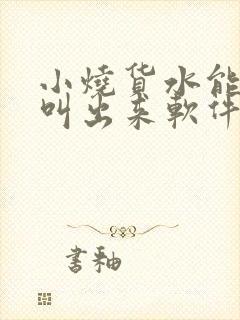 小燒货水能
叫出来軟件
書釉